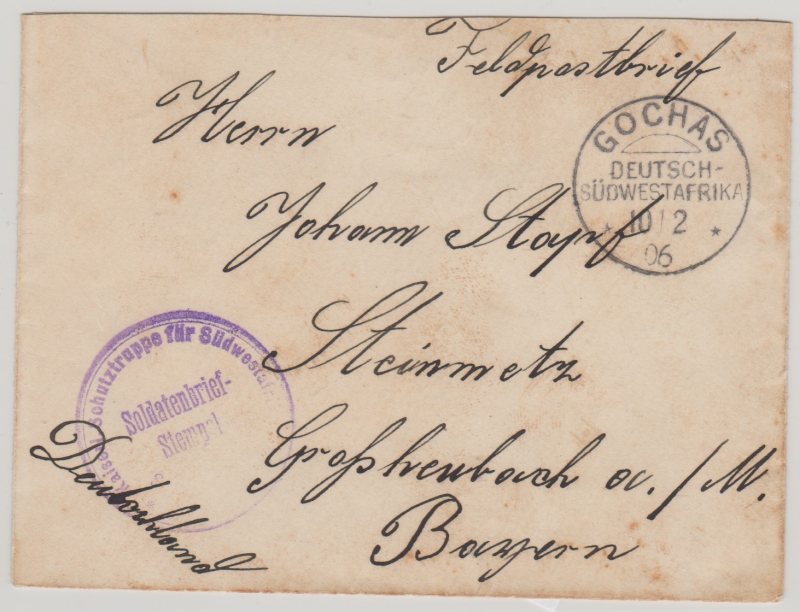 Feldpostbrief
Herrn
GOCHAS
DEUTSCH-
SÜDWESTAFRIKA
* 10/2 *
06
Johann Stapf
Steinmetz
Kaiserl. Schutztruppe für Südwestafr.
Soldatenbrief-
Stempel
Großheubach a./M.
Bayern
Deutschland